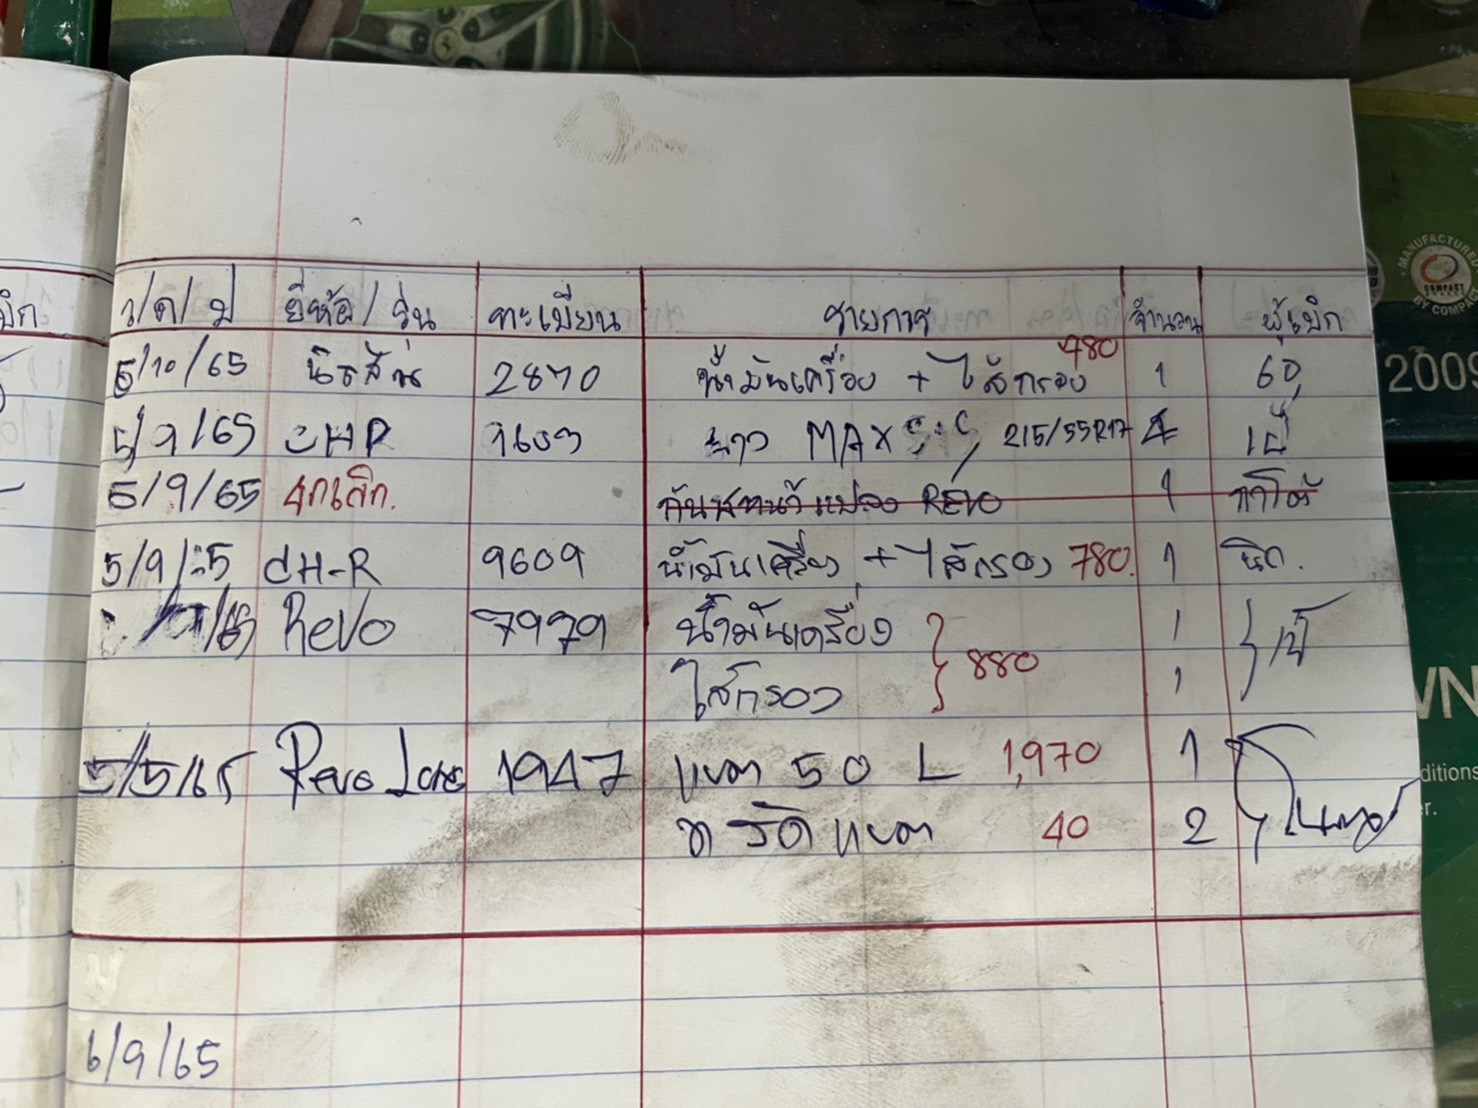 บิก
ว/ด/ป ยี่ห้อ/รุ่น ทะเบียน รายการ จำนวน ผู้เบิก
5/10/65 นิสสัน 2870 น้ำมันเครื่อง + ไส้กรอง 480 1
5/9/65 CHR 9609 ยาง MAXSIS 215/55R17 4 เป้
5/9/65 ยกเลิก. REVO 1
5/9/65 CH-R 9609 น้ำมันเครื่อง + ไส้กรอง 780. 1
/65 Revo 7979 น้ำมันเครื่อง 1 เป้
ไส้กรอง 880 1
5/5/65 Revo 1947 แบต 50 L 1,970 1
รัดแบต 40 2
6/9/65
MANUFACTURED
COMPACT
BY COMPACT
2009
WN
ditions
er.